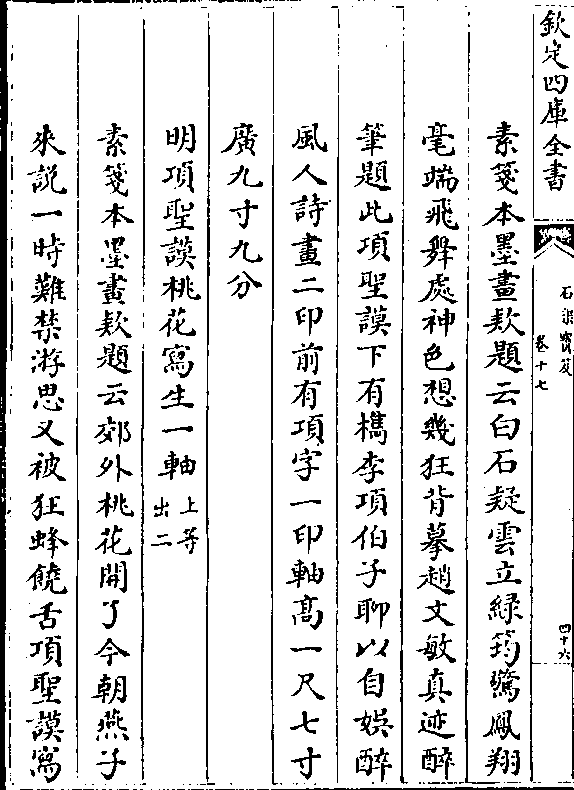 欽定四庫全書
石渠寳笈
卷十七
四十六
素箋本墨畫欵題云白石疑雲立緑筠驚鳳翔
毫端飛舞處神色想幾狂背摹趙文敏真迹醉
筆題此項聖謨下有檇李項伯子聊以自娯醉
風人詩畫二印前有項字一印軸髙一尺七寸
廣九寸九分
明項聖謨桃花寫生一軸 上等 出二
素箋本墨畫欵題云郊外桃花開了今朝燕子
來説一時難禁游思又被狂蜂饒舌項聖謨寫